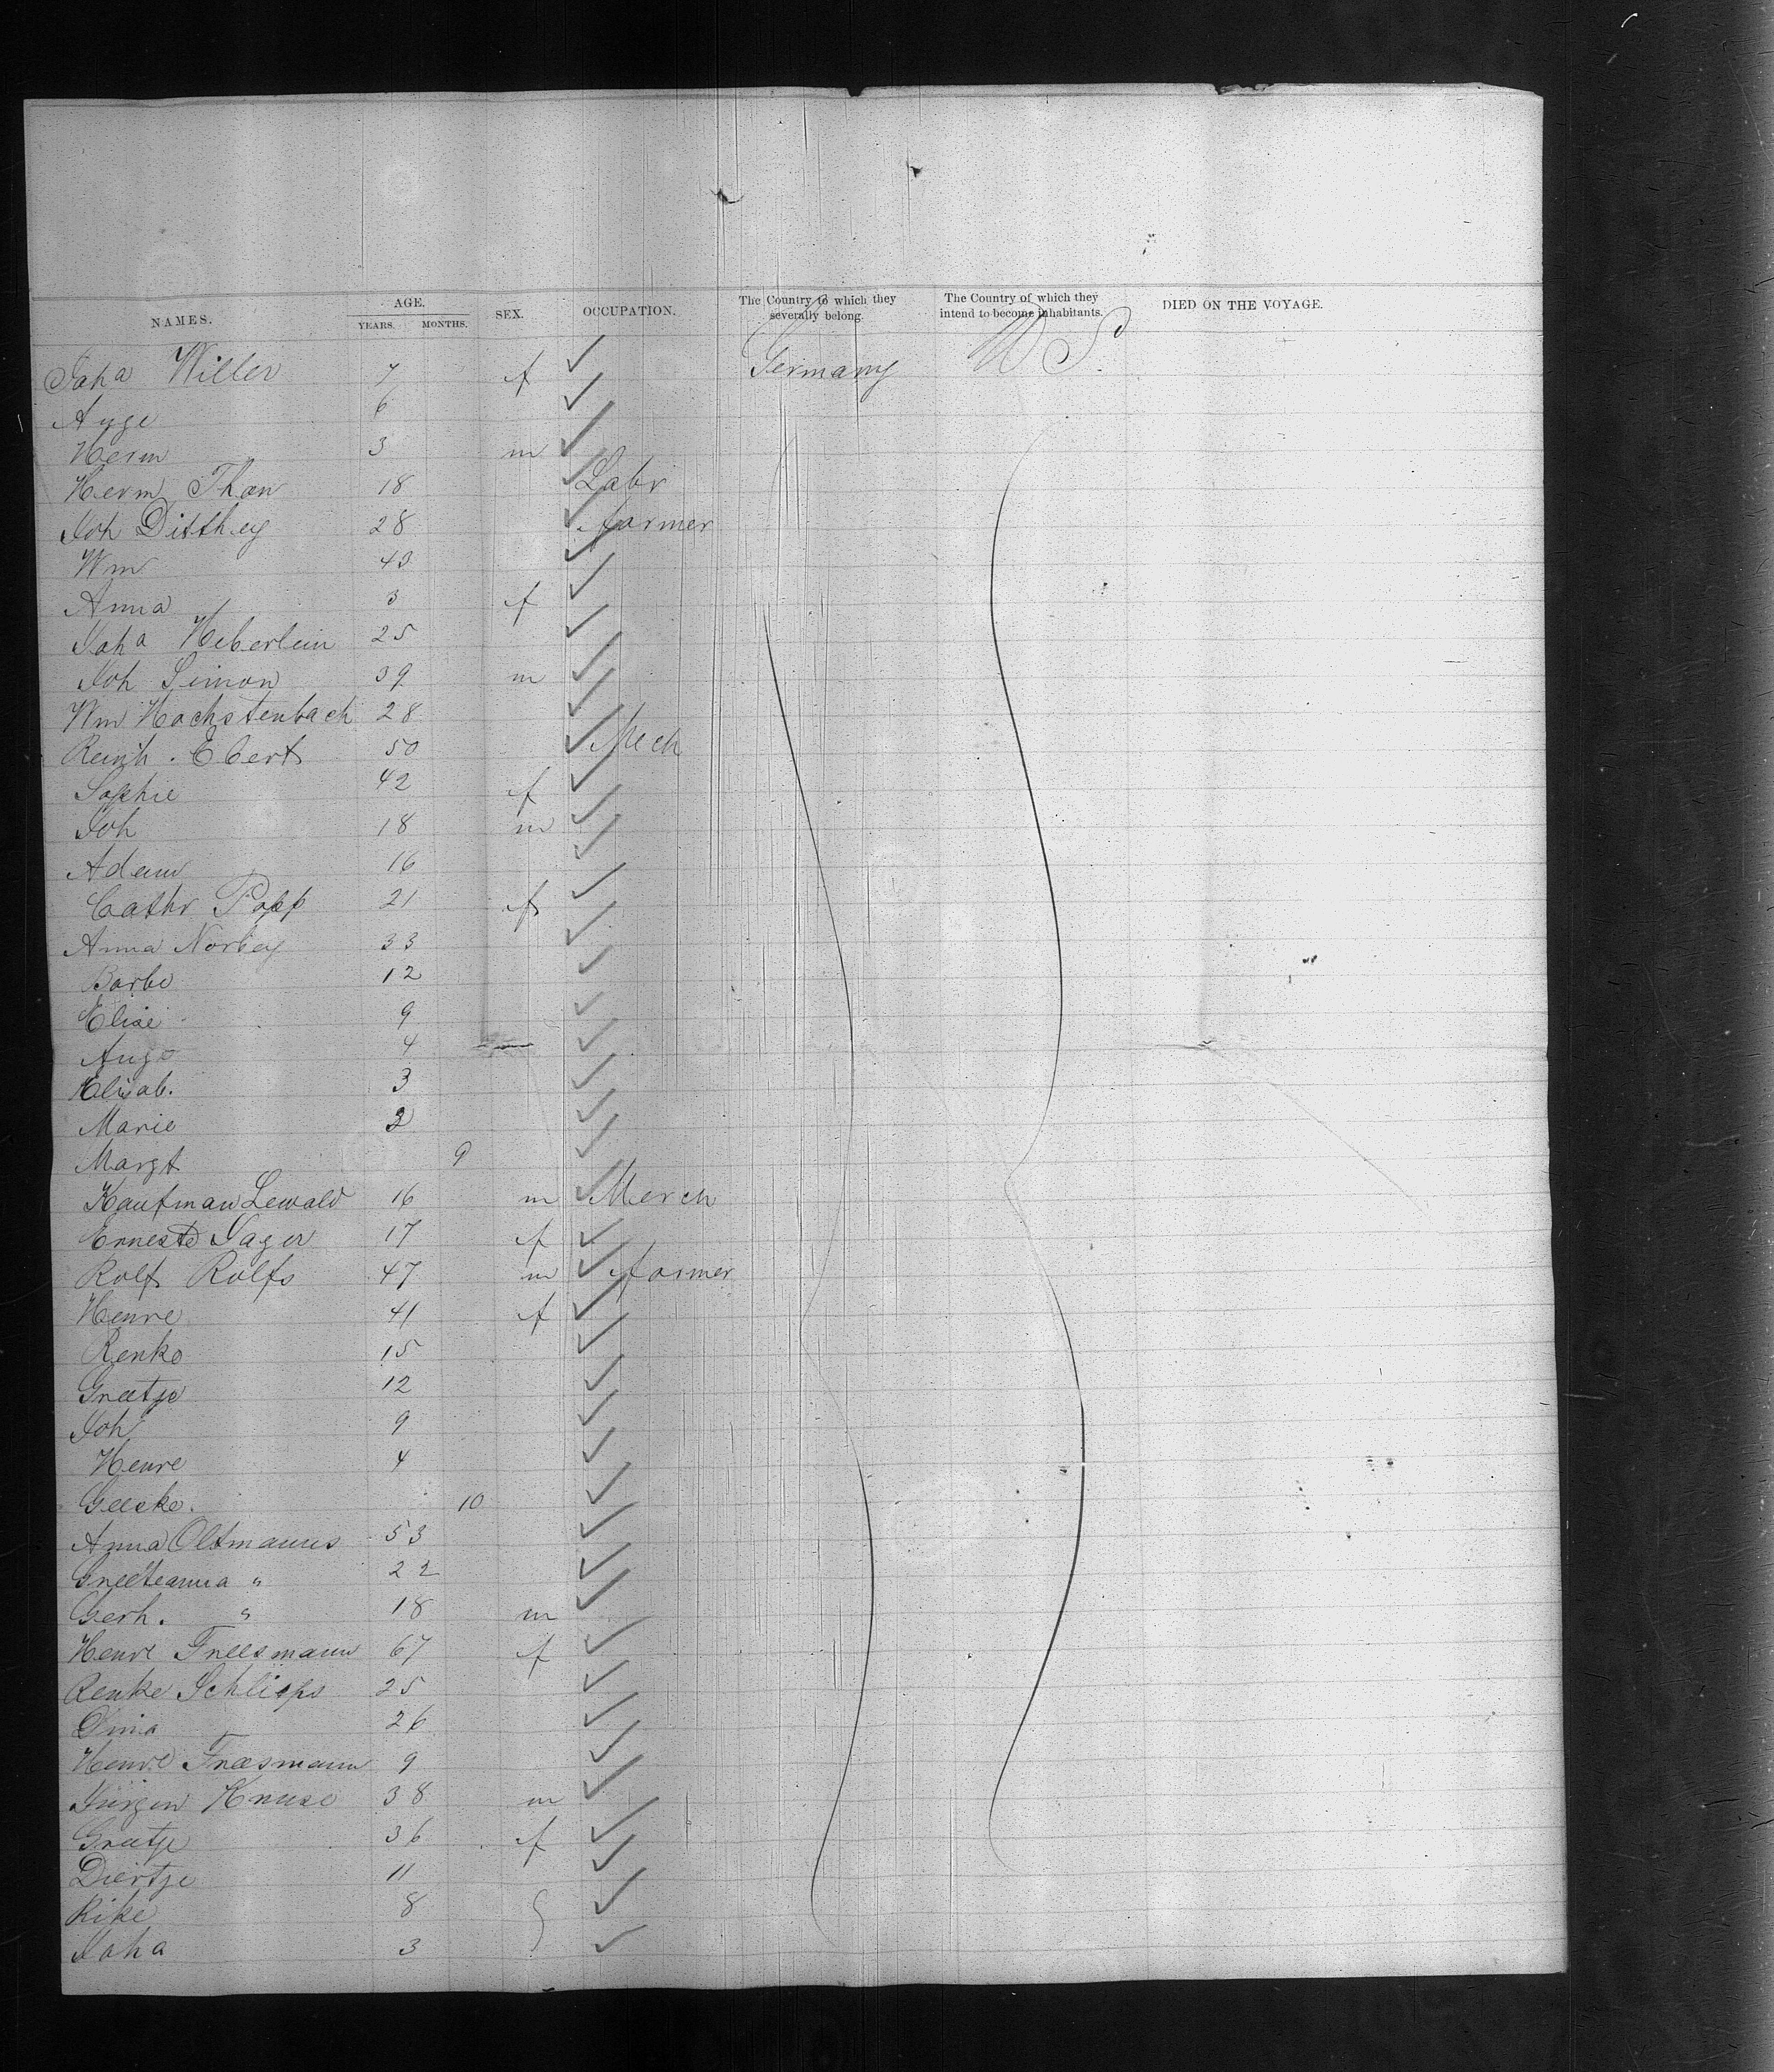 NAMES. AGE. YEARS. MONTHS. SEX. OCCUPATION. The Country to which they severally belong. The Country of which they intend to become inhabitants. DIED ON THE VOYAGE.
Joha Willer 7 f Germany U S.
Auge 6
Herm 3 m
Herm Thon 18 Labr
Joh Disthey 28 farmer
Wm 43
Anna 3 f
Joha Heberlein 25
Joh Simon 39 m
Wm Hachstenbach 28
Reinh. Ebert 50 Mech
Sophie 42 f
Joh 18 m
Adam 16
Cathr Popp 21 f
Anna Norbey 33
Barbe 12
Elise 9
Auge 4
Elisab. 3
Marie 2
Margt 9
Kaufman Lewald 16 m Merch
Erneste Jager 17 f
Rolf Rolfs 47 m farmer
Henre 41 f
Renke 15
Greetje 12
Joh 9
Henre 4
Geeske. 10
Anna Oltmanns 53
Greeteanna " 22
Gerh. " 18 m
Henre Freesmann 67 f
Renke Schlieps 25
Dina 26
Henre Freesmann 9
Jürgen Kruse 38 m
Greetje 36 f
Diertje 11
Rike 8
Joha 3